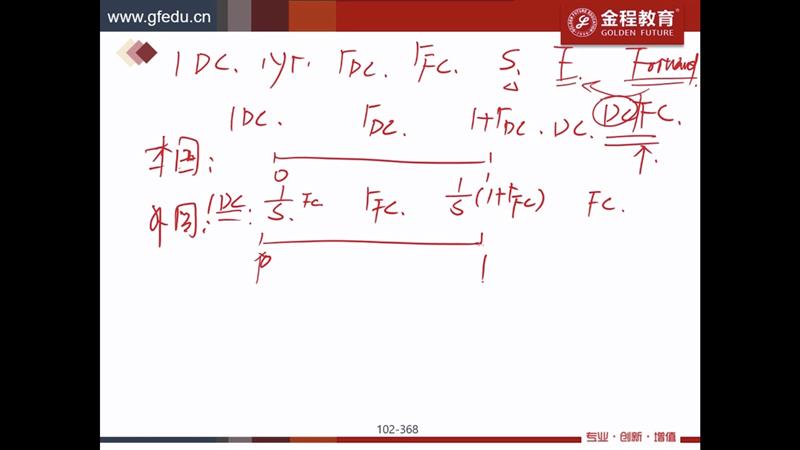 www.gfedu.cn
金程教育
GOLDEN FUTURE
1 DC. 1yr. rDC. rFC. S. F. Forward
1DC. rDC. 1+rDC. DC. DC/FC.
本国:
0 1
外国: 1DC: 1/S. FC rFC. 1/S(1+rFC) FC.
0 1
102-368
专业·创新·增值